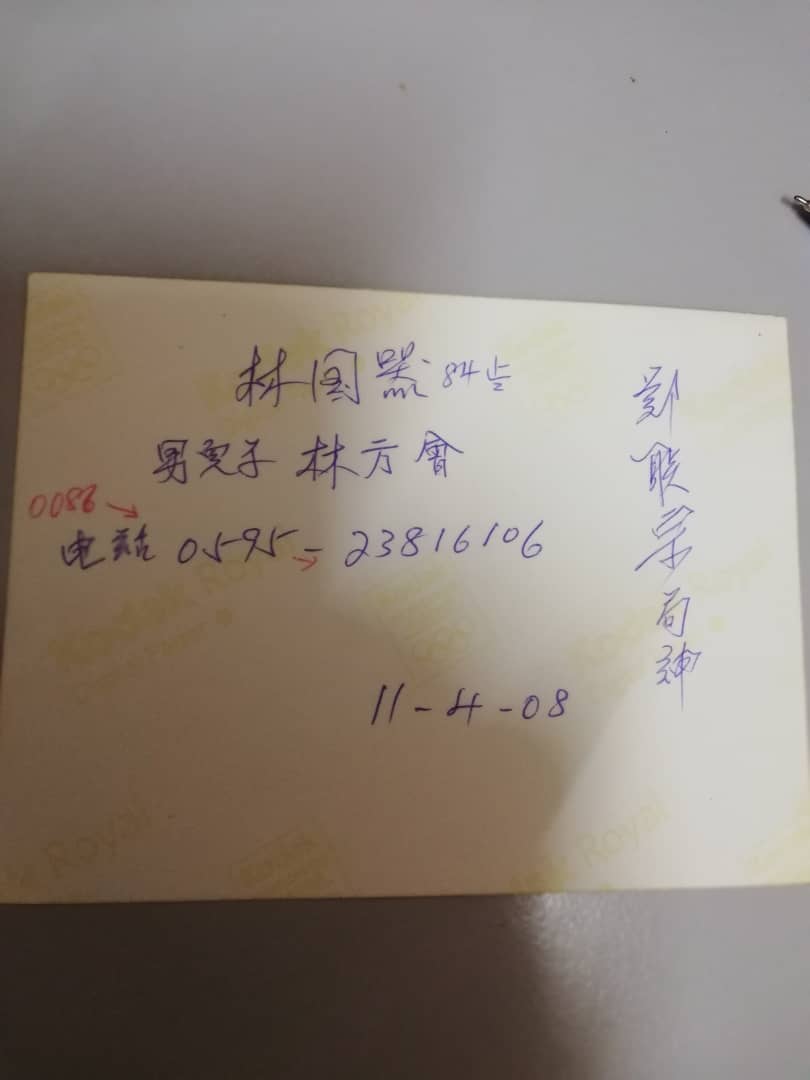 林国器 84岁
男兒子 林方會
0086
电話 0595-23816106
11-4-08
鄭联宗
Kodak Royal
Kodak Royal